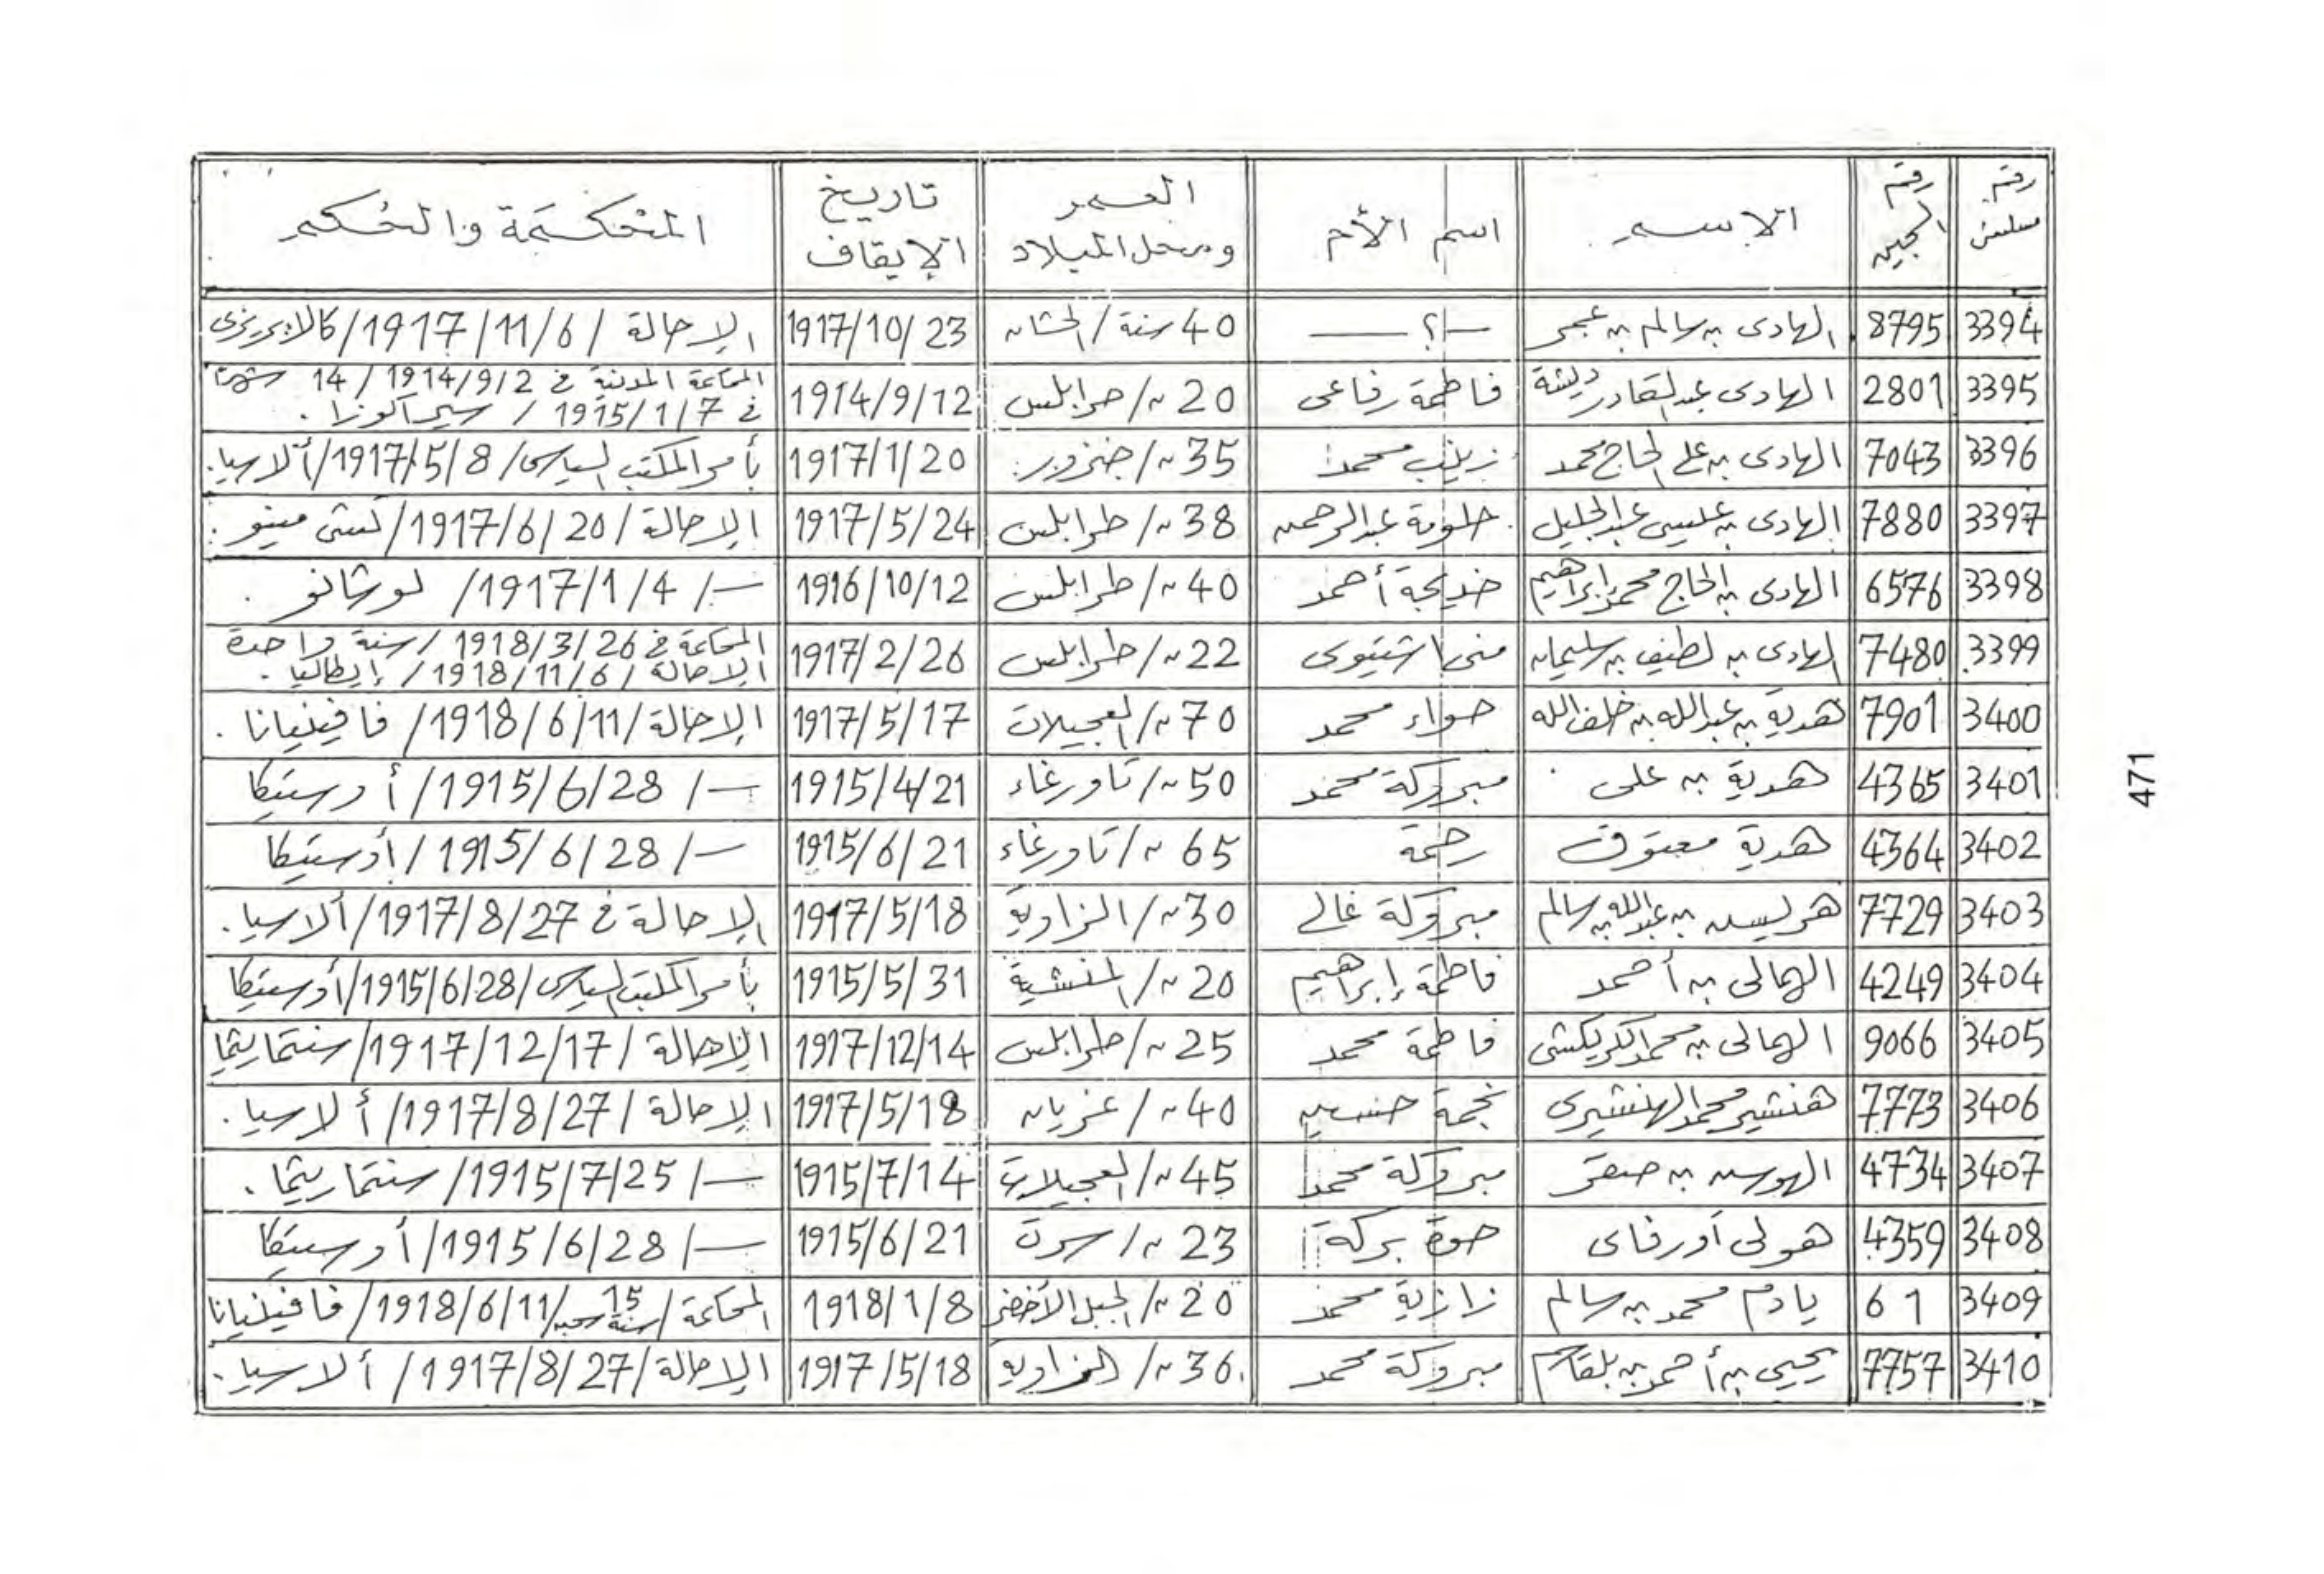 رقم مسلسل | رقم السجين | الاسم | اسم الأم | العمر ومحل الميلاد | تاريخ الإيقاف | المحكمة والحكم
3394 | 8795 | الهادى بن سالم بن عجر | —؟— | 40 سنة / الخشان | 1917/10/23 | الإحالة / 1917/11/6 / كالابريزى
3395 | 2801 | الهادى عبدالقادر دبشة | فاطمة رفاعى | 20 // طرابلس | 1914/9/12 | المحاكمة المدنية فى 1914/9/2 / 14 شهرا
فى 1915/1/7 / سيراكوزا .
3396 | 7043 | الهادى بن على الحاج محمد | زينب محمد | 35 // جنزور | 1917/1/20 | بأمر المكتب السياسى / 1917/5/8 / ألاسيا .
3397 | 7880 | الهادى بن عيسى عبدالجليل | حلومة عبدالرحمن | 38 // طرابلس | 1917/5/24 | الإحالة / 1917/6/20 / كستى مينو .
3398 | 6576 | الهادى بن الحاج محمد إبراهيم | خديجة أحمد | 40 // طرابلس | 1916/10/12 | — / 1917/1/4 / لوشانو .
3399 | 7480 | الهادى بن لطيف بن سليمان | منى اشتيوى | 22 // طرابلس | 1917/2/26 | المحاكمة فى 1918/3/26 / سنة واحدة
الإحالة / 1918/11/6 / إيطاليا .
3400 | 7901 | هدية بن عبدالله بن خلف الله | حواء محمد | 70 // العجيلات | 1917/5/17 | الإحالة / 1918/6/11 / فافينيانا .
3401 | 4365 | هدية بن على | مبروكة محمد | 50 // تاورغاء | 1915/4/21 | — / 1915/6/28 / أورستيكا
3402 | 4364 | هدية معتوق | رحمة | 65 // تاورغاء | 1915/6/21 | — / 1915/6/28 / أورستيكا
3403 | 7729 | هريسن بن عبدالله بن سالم | مبروكة غالى | 30 // الزاوية | 1917/5/18 | الإحالة فى 1917/8/27 / ألاسيا .
3404 | 4249 | الهمالى بن أحمد | فاطمة إبراهيم | 20 // المنشية | 1915/5/31 | بأمر المكتب السياسى / 1915/6/28 / أورستيكا
3405 | 9066 | الهمالى بن محمد الكريكشى | فاطمة محمد | 25 // طرابلس | 1917/12/14 | الإحالة / 1917/12/17 / سنتماريتما
3406 | 7773 | هنشير محمد الهنشيرى | نجمة حسين | 40 // غريان | 1917/5/18 | الإحالة / 1917/8/27 / ألاسيا .
3407 | 4734 | الهوسن بن صقر | مبروكة محمد | 45 // العجيلات | 1915/7/14 | — / 1915/7/25 / سنتماريتما .
3408 | 4359 | هولى أورفاى | حوة بركة | 23 // سرت | 1915/6/21 | — / 1915/6/28 / أورستيكا
3409 | 61 | يادم محمد بن سالم | زازية محمد | 20 // الجبل الأخضر | 1918/1/8 | المحاكمة / 15 سنة سجن / 1918/6/11 / فافينيانا
3410 | 7757 | يحيى بن أحمد بن بلقاسم | مبروكة محمد | 36 // الزاوية | 1917/5/18 | الإحالة / 1917/8/27 / ألاسيا .
471